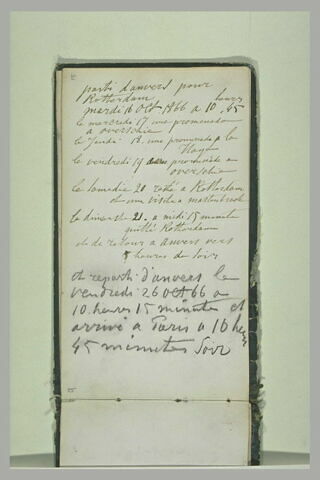 parti d'anvers pour
Rotterdam
mardi 16 Oct 1866 a 10 heures 45
le mercredi 17 une promenade
a overschie
le Jeudi 18. une promenade a la
Haye
le vendredi 19 promenade a
overschie
le Samedie 20 resté a Rotterdam
et une visite a
le dimanche 21. a midi 15 minute
quitté Rotterdam
et de retour a anvers vers
5 heures du Soir
et reparti d'anvers le
vendredi 26 oct 66 a
10 heures 15 minutes et
arrivé a Paris a 10 heures
45 minutes Soir